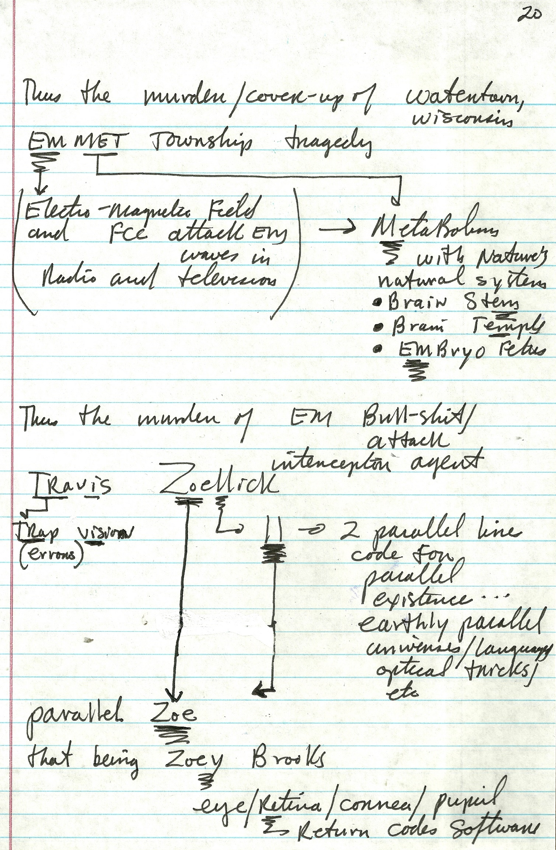 20
Thus the murder/cover-up of Watertown,
Wisconsin
EMMET Township tragedy
Electro-Magnetic Field
and FCC attack EM
waves in
Radio and television
→ MetaBolism
with Nature's
natural system
• Brain Stem
• Brain Temple
• EMBryo Fetus
Thus the murder of EM Bull-shit/
attack
interceptor agent
Travis Zoellick
Trap vision
(errors)
|| → 2 parallel line
code for
parallel
existence...
earthly parallel
universes/language
optical tricks/
etc
parallel Zoe
that being Zoey Brooks
eye/Retina/cornea/pupil
Return codes Software